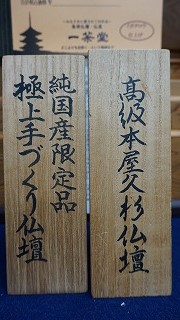 高級本屋久杉仏壇
純国産限定品
極上手づくり仏壇
一茶堂